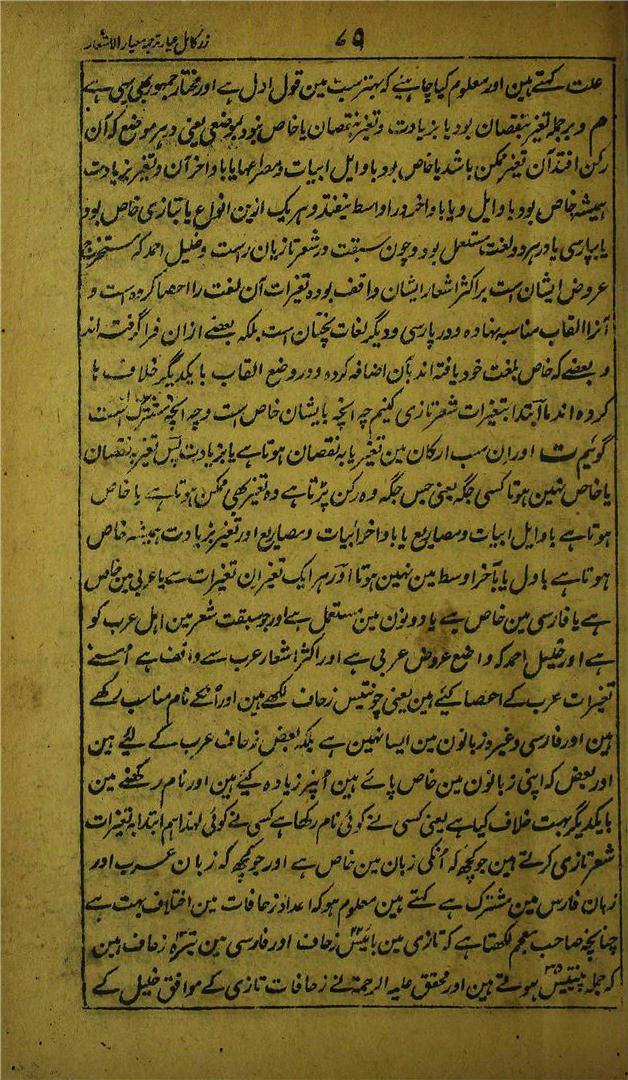 زر کامل عیار ترجمه معیار الاشعار
٦٩
علت کہتے ہین اور معلوم کیا چاہئیے کہ بہتر سب مین قول اول ہے اور مختار جمہور بھی یہی ہے
م و بر جملہ تغیر بنقصان بود یا بزیادت و تغیر بنقصان یا خاص نبود بموضعی یعنی در ہر موضع کہ آن
رکن افتد آن تغیر ممکن باشد یا خاص بود باوایل ابیات و مصراعہا یا باواخر آن و تغیر بزیادت
ہمیشہ خاص بود باوایل و یا باواخر و در اوسط نیفتد و ہر یک ازین انواع یا بتازی خاص بود
یا بپارسی یا در ہر دو لغت مستعمل بود و چون سبقت در شعر تازیان راست و خلیل احمد کہ مستخرج
عروض ایشان است بر اکثر اشعار ایشان واقف بودہ تغیرات آن لغت را احصا کردہ است و
آنرا القاب مناسبہ نہادہ و در پارسی و دیگر لغات نچنان است بلکہ بعضے ازان فرا گرفتہ اند
و بعضے کہ خاص بلغت خود یافتہ اند بآن اضافہ کردہ و در وضع القاب با یکدیگر خلاف ہا
کردہ اند ما ابتدا بتغیرات شعر تازی کنیم چہ انچہ بایشان خاص است و چہ انچہ مشترک است
گوئیم ت اور ان سب ارکان مین تغیر یا بہ نقصان ہوتا ہے یا بزیادت پس تغیر بہ نقصان
یا خاص نہین ہوتا کسی جگہ یعنی جس جگہ وہ رکن پڑتا ہے وہ تغیر بھی ممکن ہوتا ہے یا خاص
ہوتا ہے باوایل ابیات و مصاریع یا باواخر ابیات و مصاریع اور تغیر بزیادت ہمیشہ خاص
ہوتا ہے باول یا بآخر اوسط مین نہین ہوتا اور ہر ایک تغیر ان تغیرات سے یا عربی مین خاص
ہے یا فارسی مین خاص ہے یا دونون مین مستعمل ہے اور جو سبقت شعر مین اہل عرب کو
ہے اور خلیل احمد کہ واضع عروض عربی ہے اور اکثر اشعار عرب سے واقف ہے اُسنے
تغیرات عرب کے احصا کیئے ہین یعنی چونتیس زحاف لکھے ہین اور اُنکے نام مناسب رکھے
ہین اور فارسی وغیرہ زبانون مین ایسا نہین ہے بلکہ بعض زحاف عرب کے لیئے ہین
اور بعض کہ اپنی زبانون مین خاص پائے ہین اُنپر زیادہ کیئے ہین اور نام رکھنے مین
با یکدیگر بہت خلاف کیا ہے یعنی کسی نے کوئی نام رکھا ہے کسی نے کوئی لہذا ہم ابتدا بہ تغیرات
شعر تازی کرتے ہین جو کچھ کہ اُنکی زبان مین خاص ہے اور جو کچھ کہ زبان عرب اور
زبان فارس مین مشترک ہے کہتے ہین معلوم ہو کہ اعداد زحافات مین اختلاف بہت ہے
چنانچہ صاحب معجم لکھتا ہے کہ تازی مین بائیس۲۲ زحاف اور فارسی مین تیرہ زحاف ہین
کہ جملہ پینتیس۳۵ ہوتے ہین اور محقق علیہ الرحمۃ نے زحافات تازی کے موافق خلیل کے